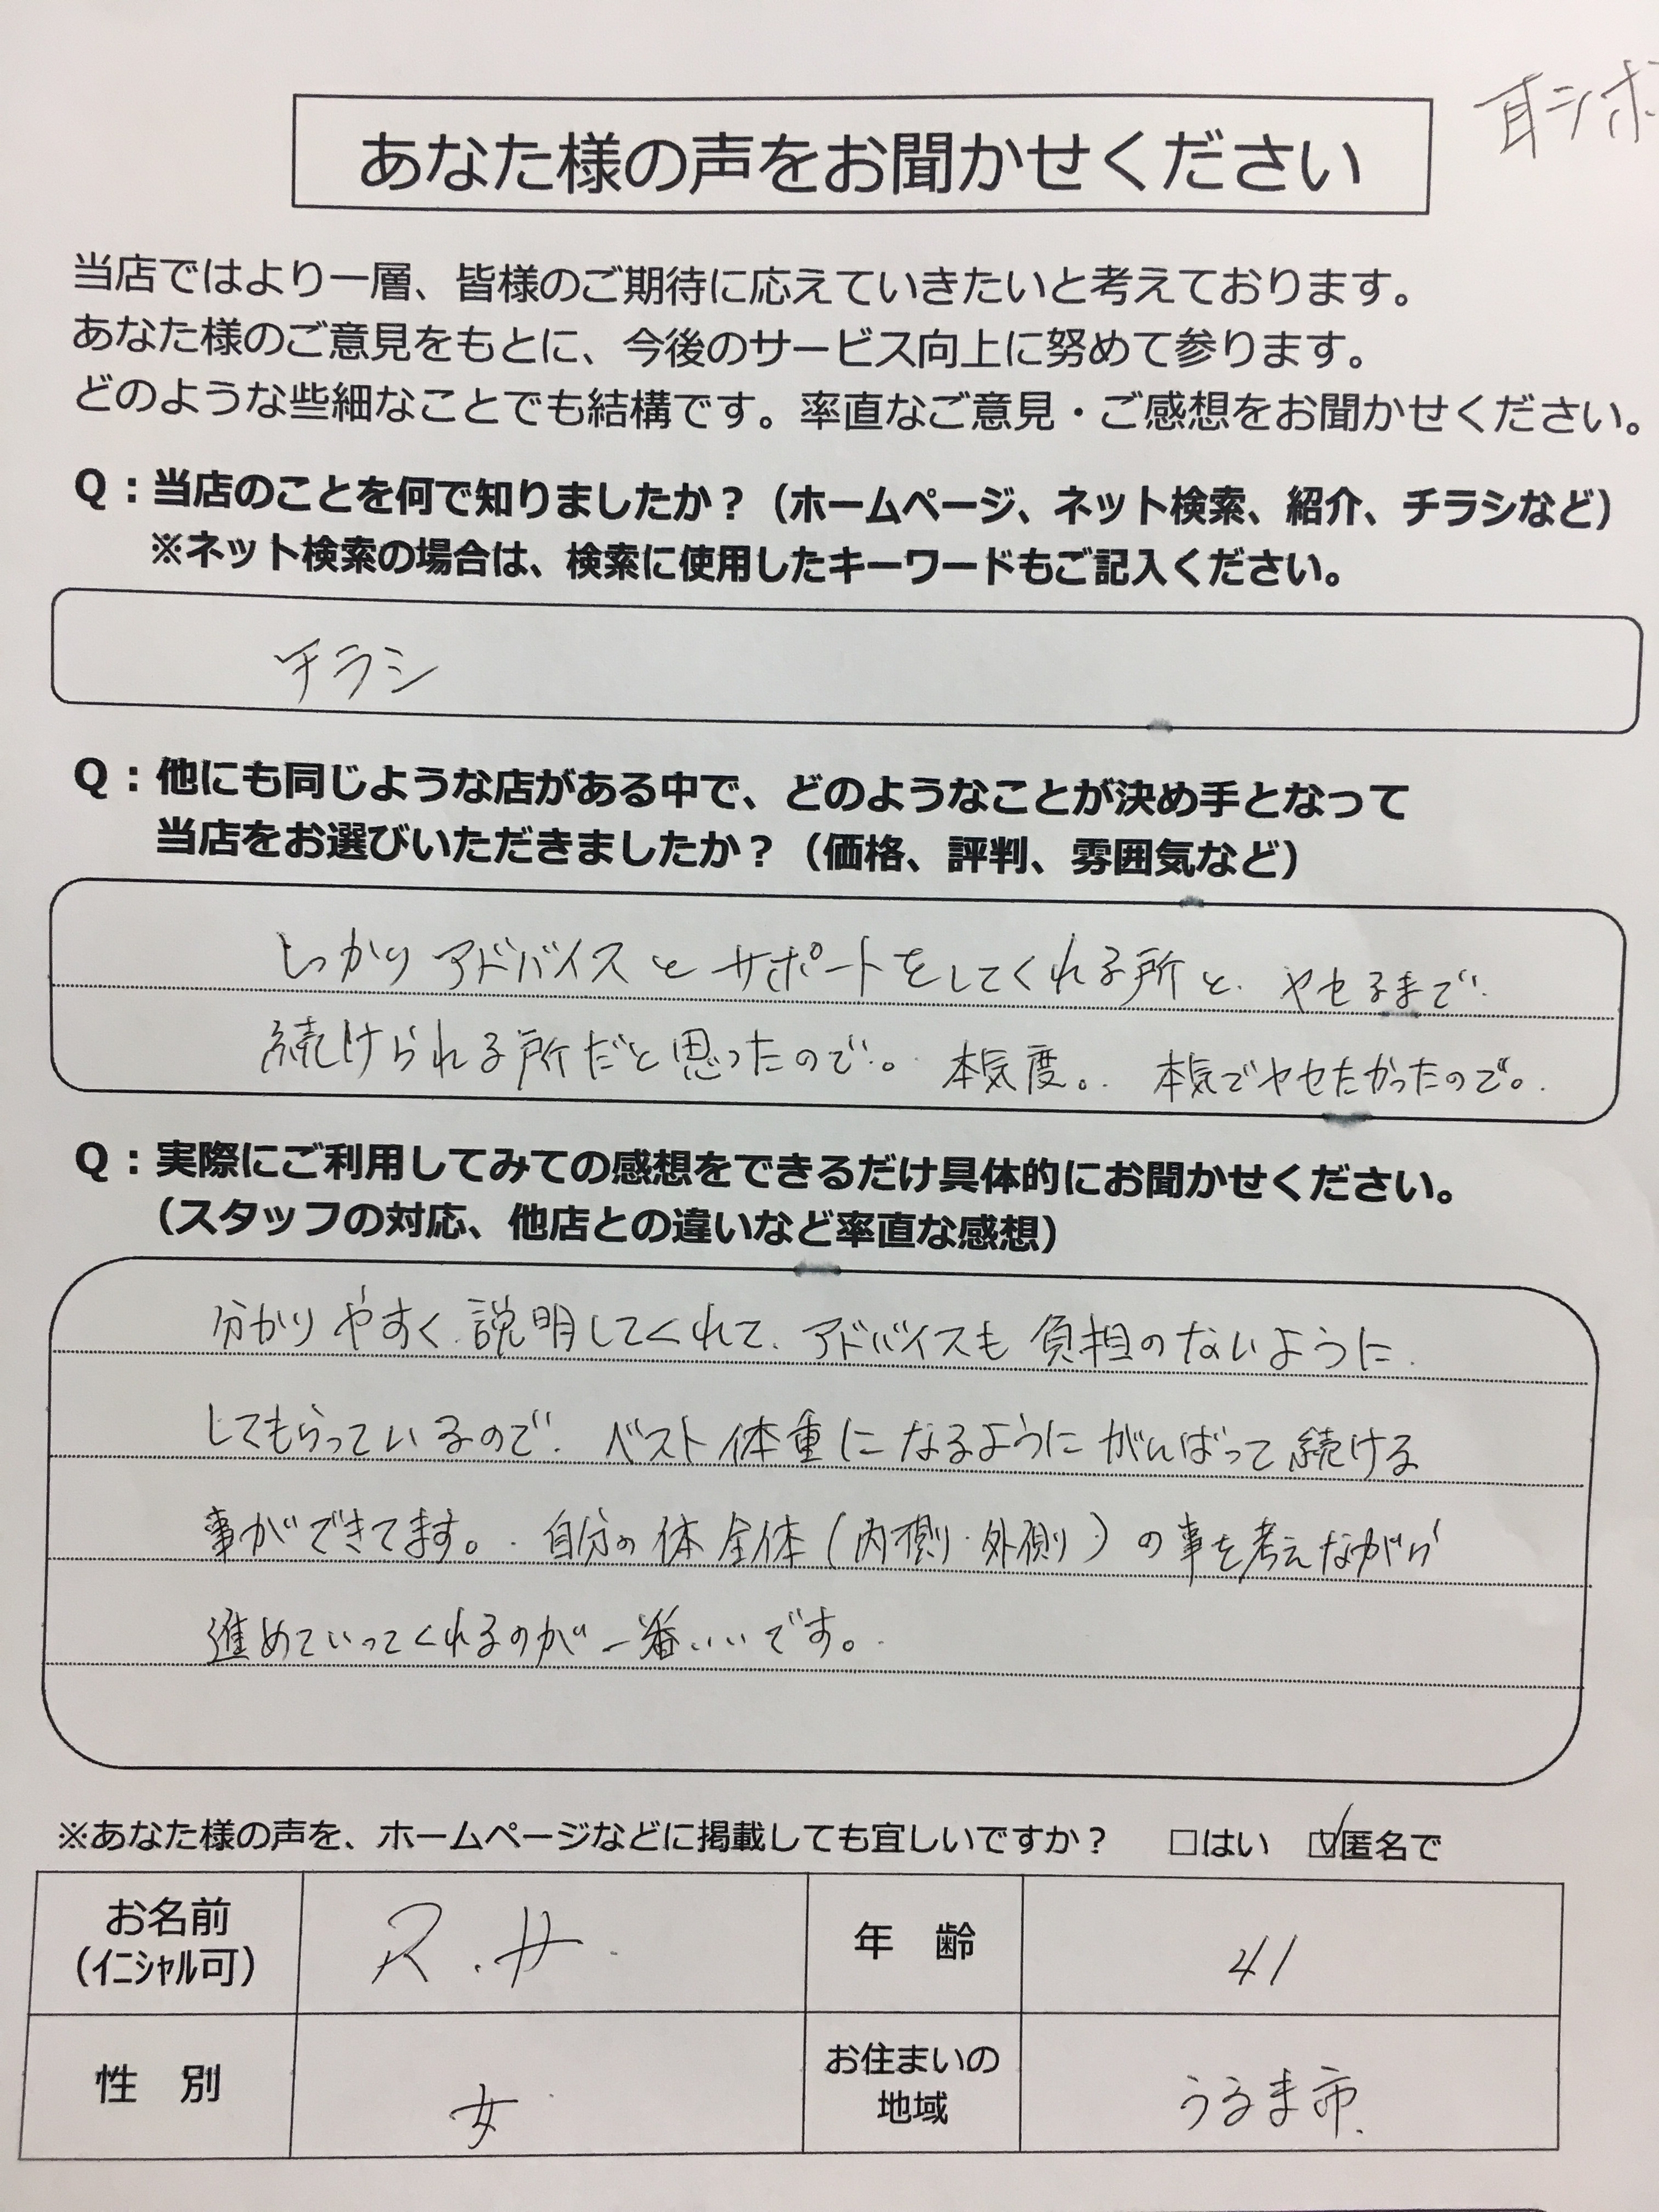 耳シボ
あなた様の声をお聞かせください
当店ではより一層、皆様のご期待に応えていきたいと考えております。
あなた様のご意見をもとに、今後のサービス向上に努めて参ります。
どのような些細なことでも結構です。率直なご意見・ご感想をお聞かせください。
Q：当店のことを何で知りましたか？（ホームページ、ネット検索、紹介、チラシなど）
※ネット検索の場合は、検索に使用したキーワードもご記入ください。
チラシ
Q：他にも同じような店がある中で、どのようなことが決め手となって
当店をお選びいただきましたか？（価格、評判、雰囲気など）
しっかりアドバイスとサポートをしてくれる所と、ヤセるまで
続けられる所だと思ったので。本気度。本気でヤセたかったので。
Q：実際にご利用してみての感想をできるだけ具体的にお聞かせください。
（スタッフの対応、他店との違いなど率直な感想）
分かりやすく説明してくれて、アドバイスも負担のないように
してもらっているので、ベスト体重になるようにがんばって続ける
事ができてます。自分の体全体（内側・外側）の事を考えながら
進めていってくれるのが一番いいです。
※あなた様の声を、ホームページなどに掲載しても宜しいですか？ □はい ☑匿名で
お名前 R.H 年 齢 41
（ｲﾆｼｬﾙ可）
性 別 女 お住まいの地域 うるま市